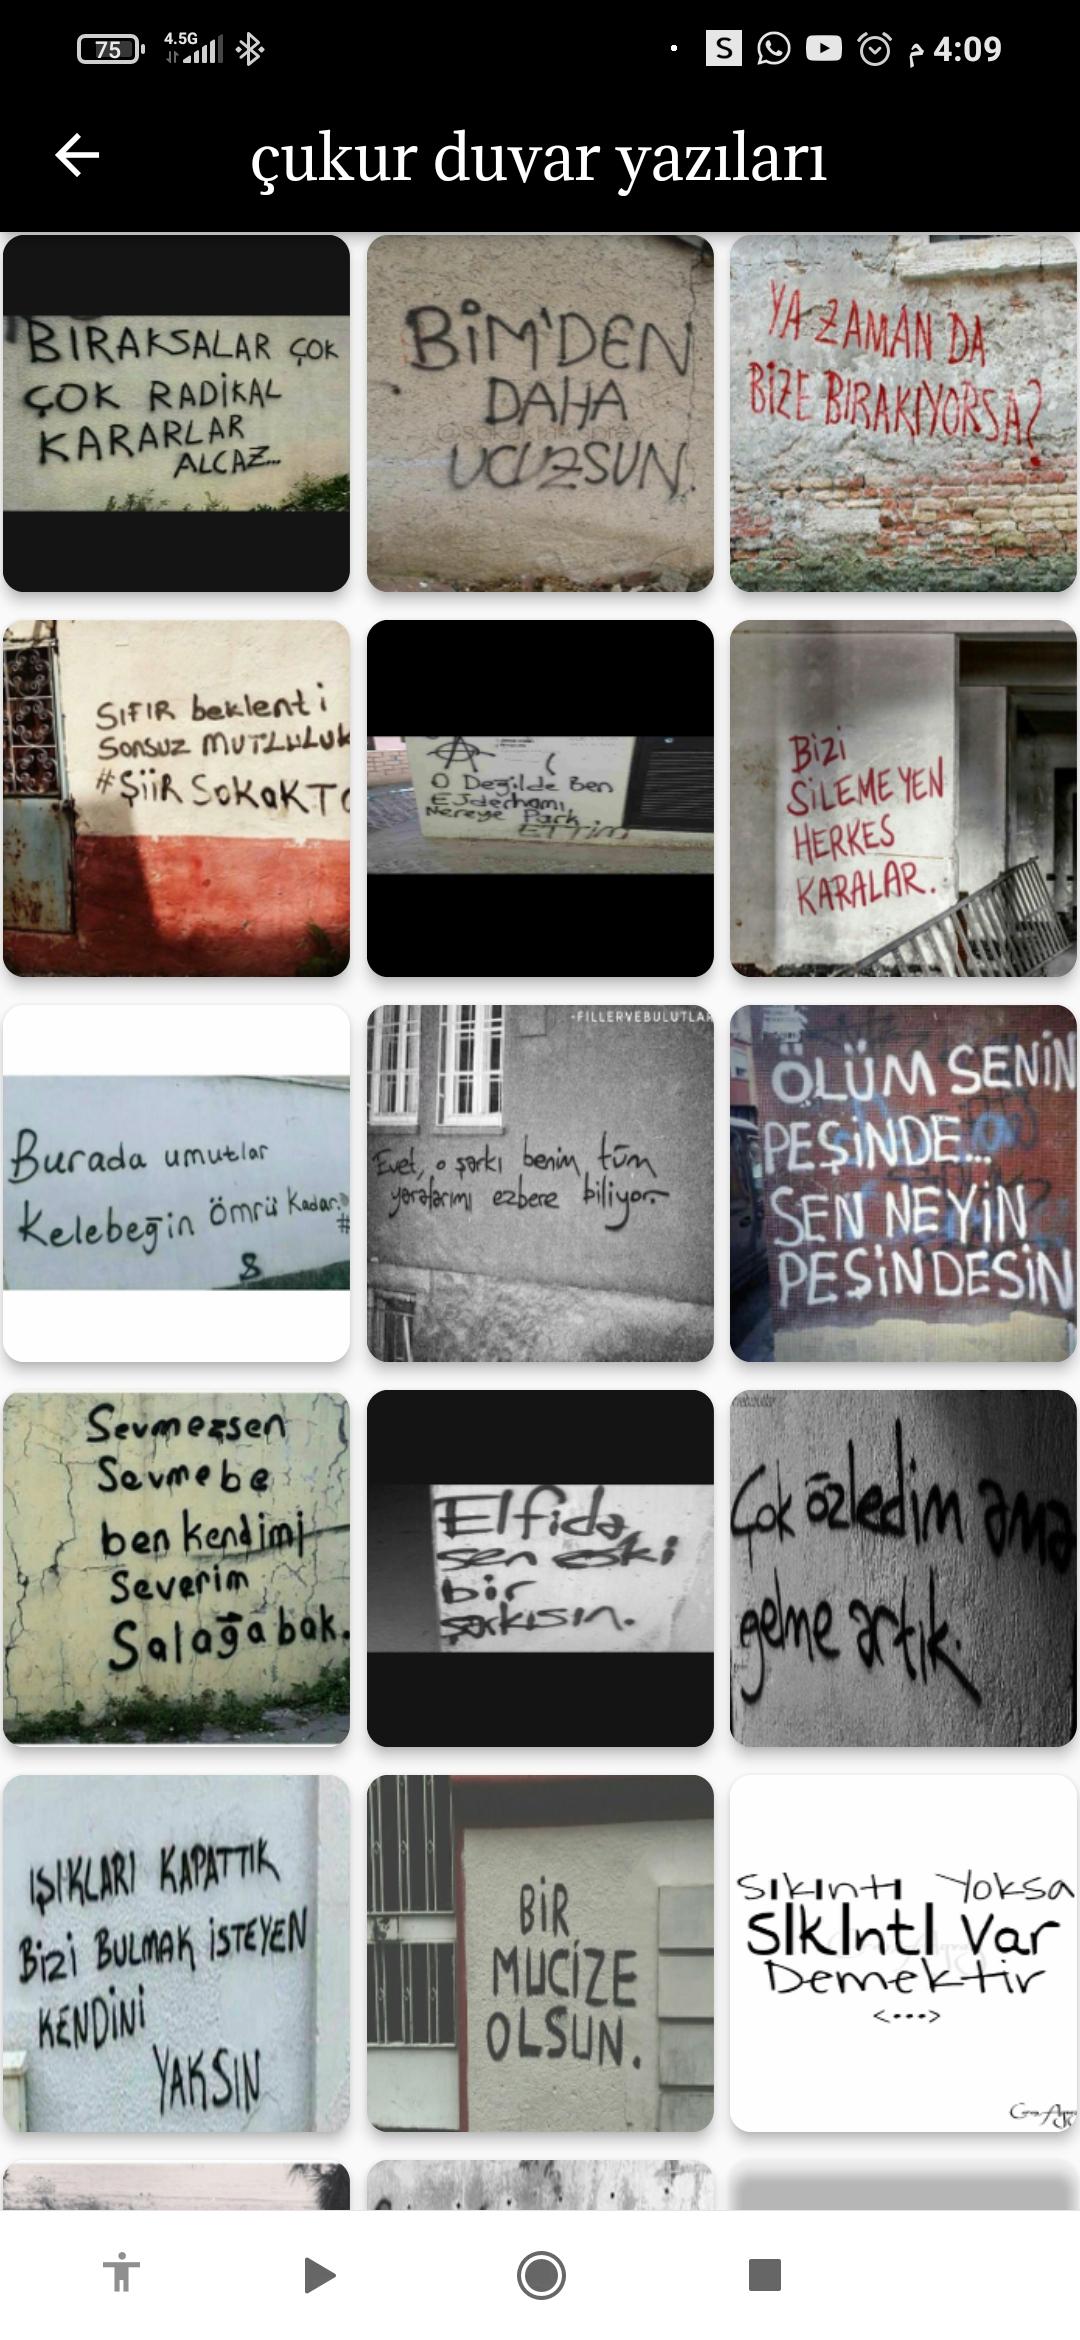 75 4.5G S م 4:09
çukur duvar yazıları
BIRAKSALAR ÇOK
ÇOK RADİKAL
KARARLAR
ALCAZ...
BİM'DEN
DAHA
UCUZSUN.
YA ZAMAN DA
BİZE BIRAKIYORSA?
SIFIR beklenti
Sonsuz MUTLULUK
#ŞİİR SOKAKTA
O Değilde Ben
EJderhamı,
Nereye Park
ETTİM
BİZİ
SİLEMEYEN
HERKES
KARALAR.
Burada umutlar
Kelebeğin Ömrü Kadar.
#
8
-FILLERVEBULUTLAR
Evet, o şarkı benim tüm
yaralarımı ezbere biliyor.
ÖLÜM SENİN
PEŞİNDE...
SEN NEYİN
PEŞİNDESİN
Sevmezsen
Sevme be
ben kendimi
Severim
Salağa bak.
Elfida,
sen eski
bir
şarkısın.
Çok özledim ama
gelme artık.
IŞIKLARI KAPATTIK
BİZİ BULMAK İSTEYEN
KENDİNİ
YAKSIN
BİR
MUCİZE
OLSUN.
Sıkıntı Yoksa
Sıkıntı Var
Demektir
<...>